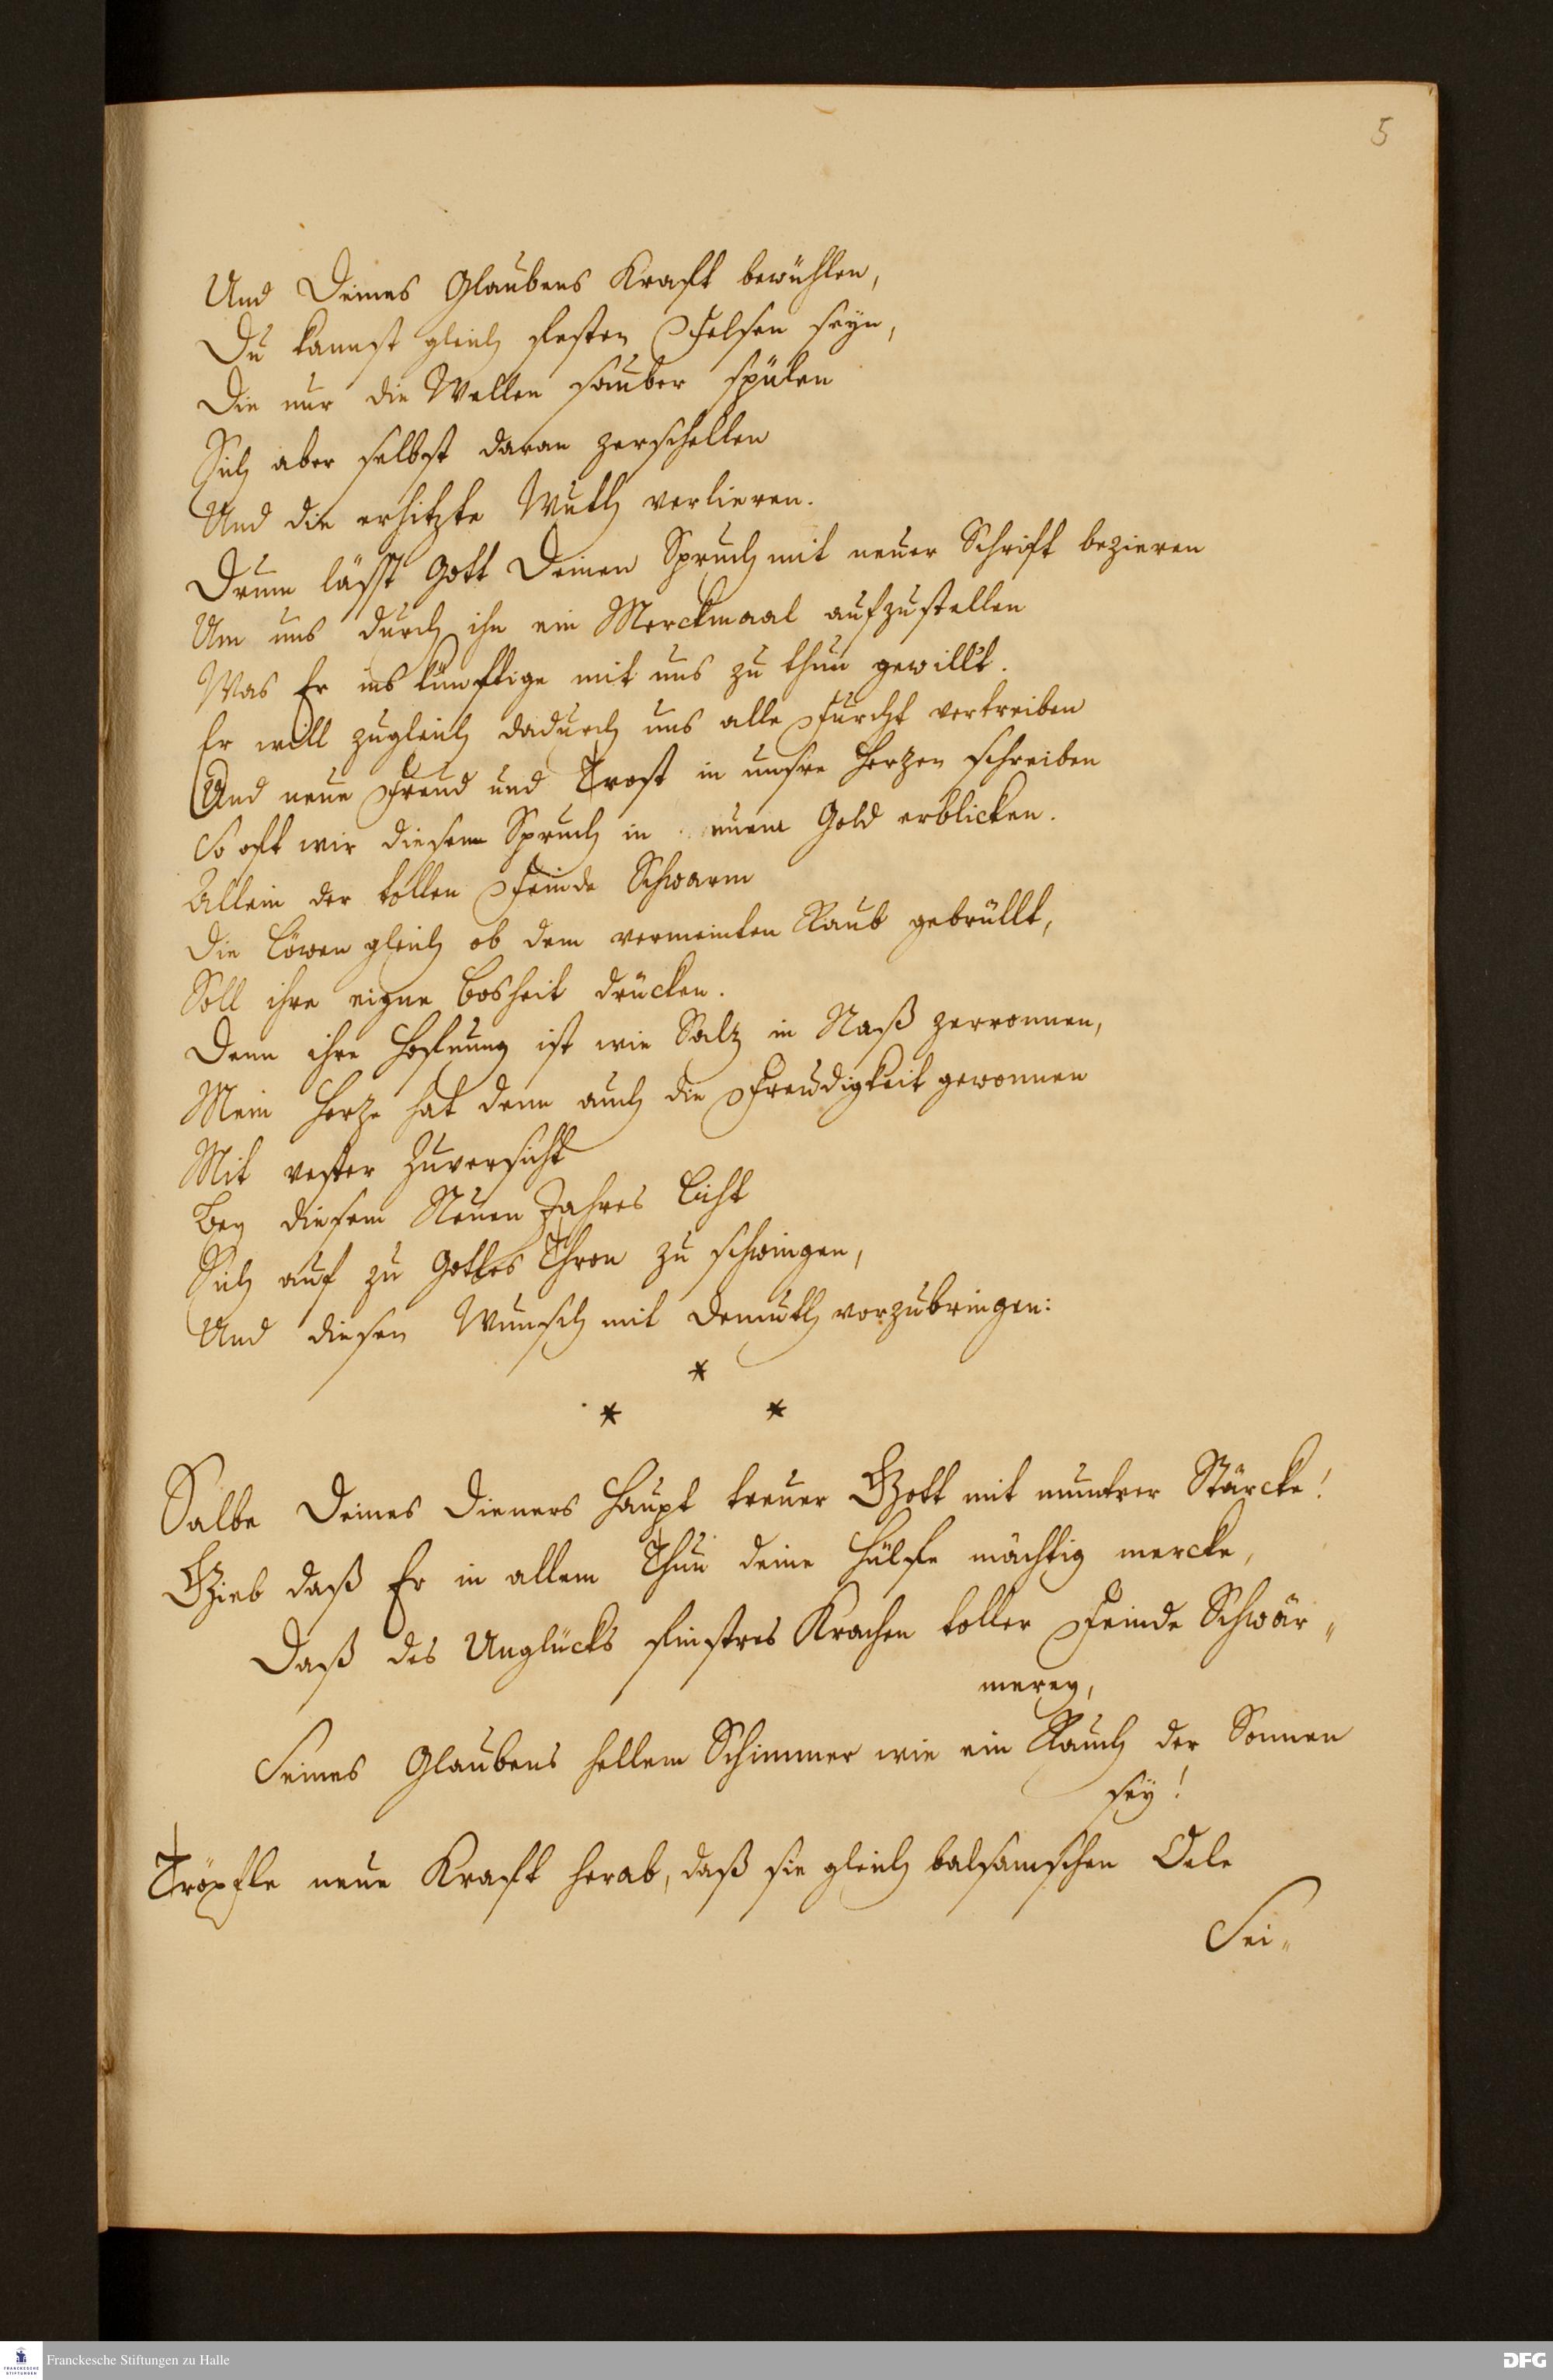 5
Und Deines Glaubens Krafft bewühlen,
Du kannst gleich festen Felsen seyn,
Die nur die Wellen sauber spülen
Sich aber selbst daran zerschellen
Und die erhitzte Wuth verlieren.
Drum lässt Gott Deinen Spruch mit neuer Schrift bezieren
Um uns durch ihn ein Merckmaal aufzustellen
Was Er ins künfftige mit uns zu thun gewillt.
Er will zugleich dadurch uns alle Furcht vertreiben
Und neue Freud und Trost in unsre Herzen schreiben
So oft wir diesen Spruch in neuem Gold erblicken.
Allein der tollen Feinde Schwarm
Die Löwen gleich ob dem vermeinten Raub gebrüllt,
Soll ihre eigne Bosheit drücken.
Denn ihre Hofnung ist wie Salz in Naß zerronnen,
Mein Herze hat denn auch die Freudigkeit gewonnen
Mit vester Zuversicht
Bey diesem Neuen Jahres Licht
Sich auf zu Gottes Thron zu schwingen,
Und diesen Wunsch mit Demuth vorzubringen:
*
* *
Salbe Deines Dieners Haupt treuer GOtt mit muntrer Stärcke!
GIeb daß Er in allem Thun deine Hülfe mächtig mercke,
Daß des Unglücks finstres Krachen toller Feinde Schwär„
merey,
Seines Glaubens hellem Schimmer wie ein Rauch der Sonnen
sey!
Tröpfle neue Krafft herab, daß sie gleich balsamschen Oele
Sei„
Franckesche Stiftungen zu Halle
FRANCKESCHE STIFTUNGEN
DFG